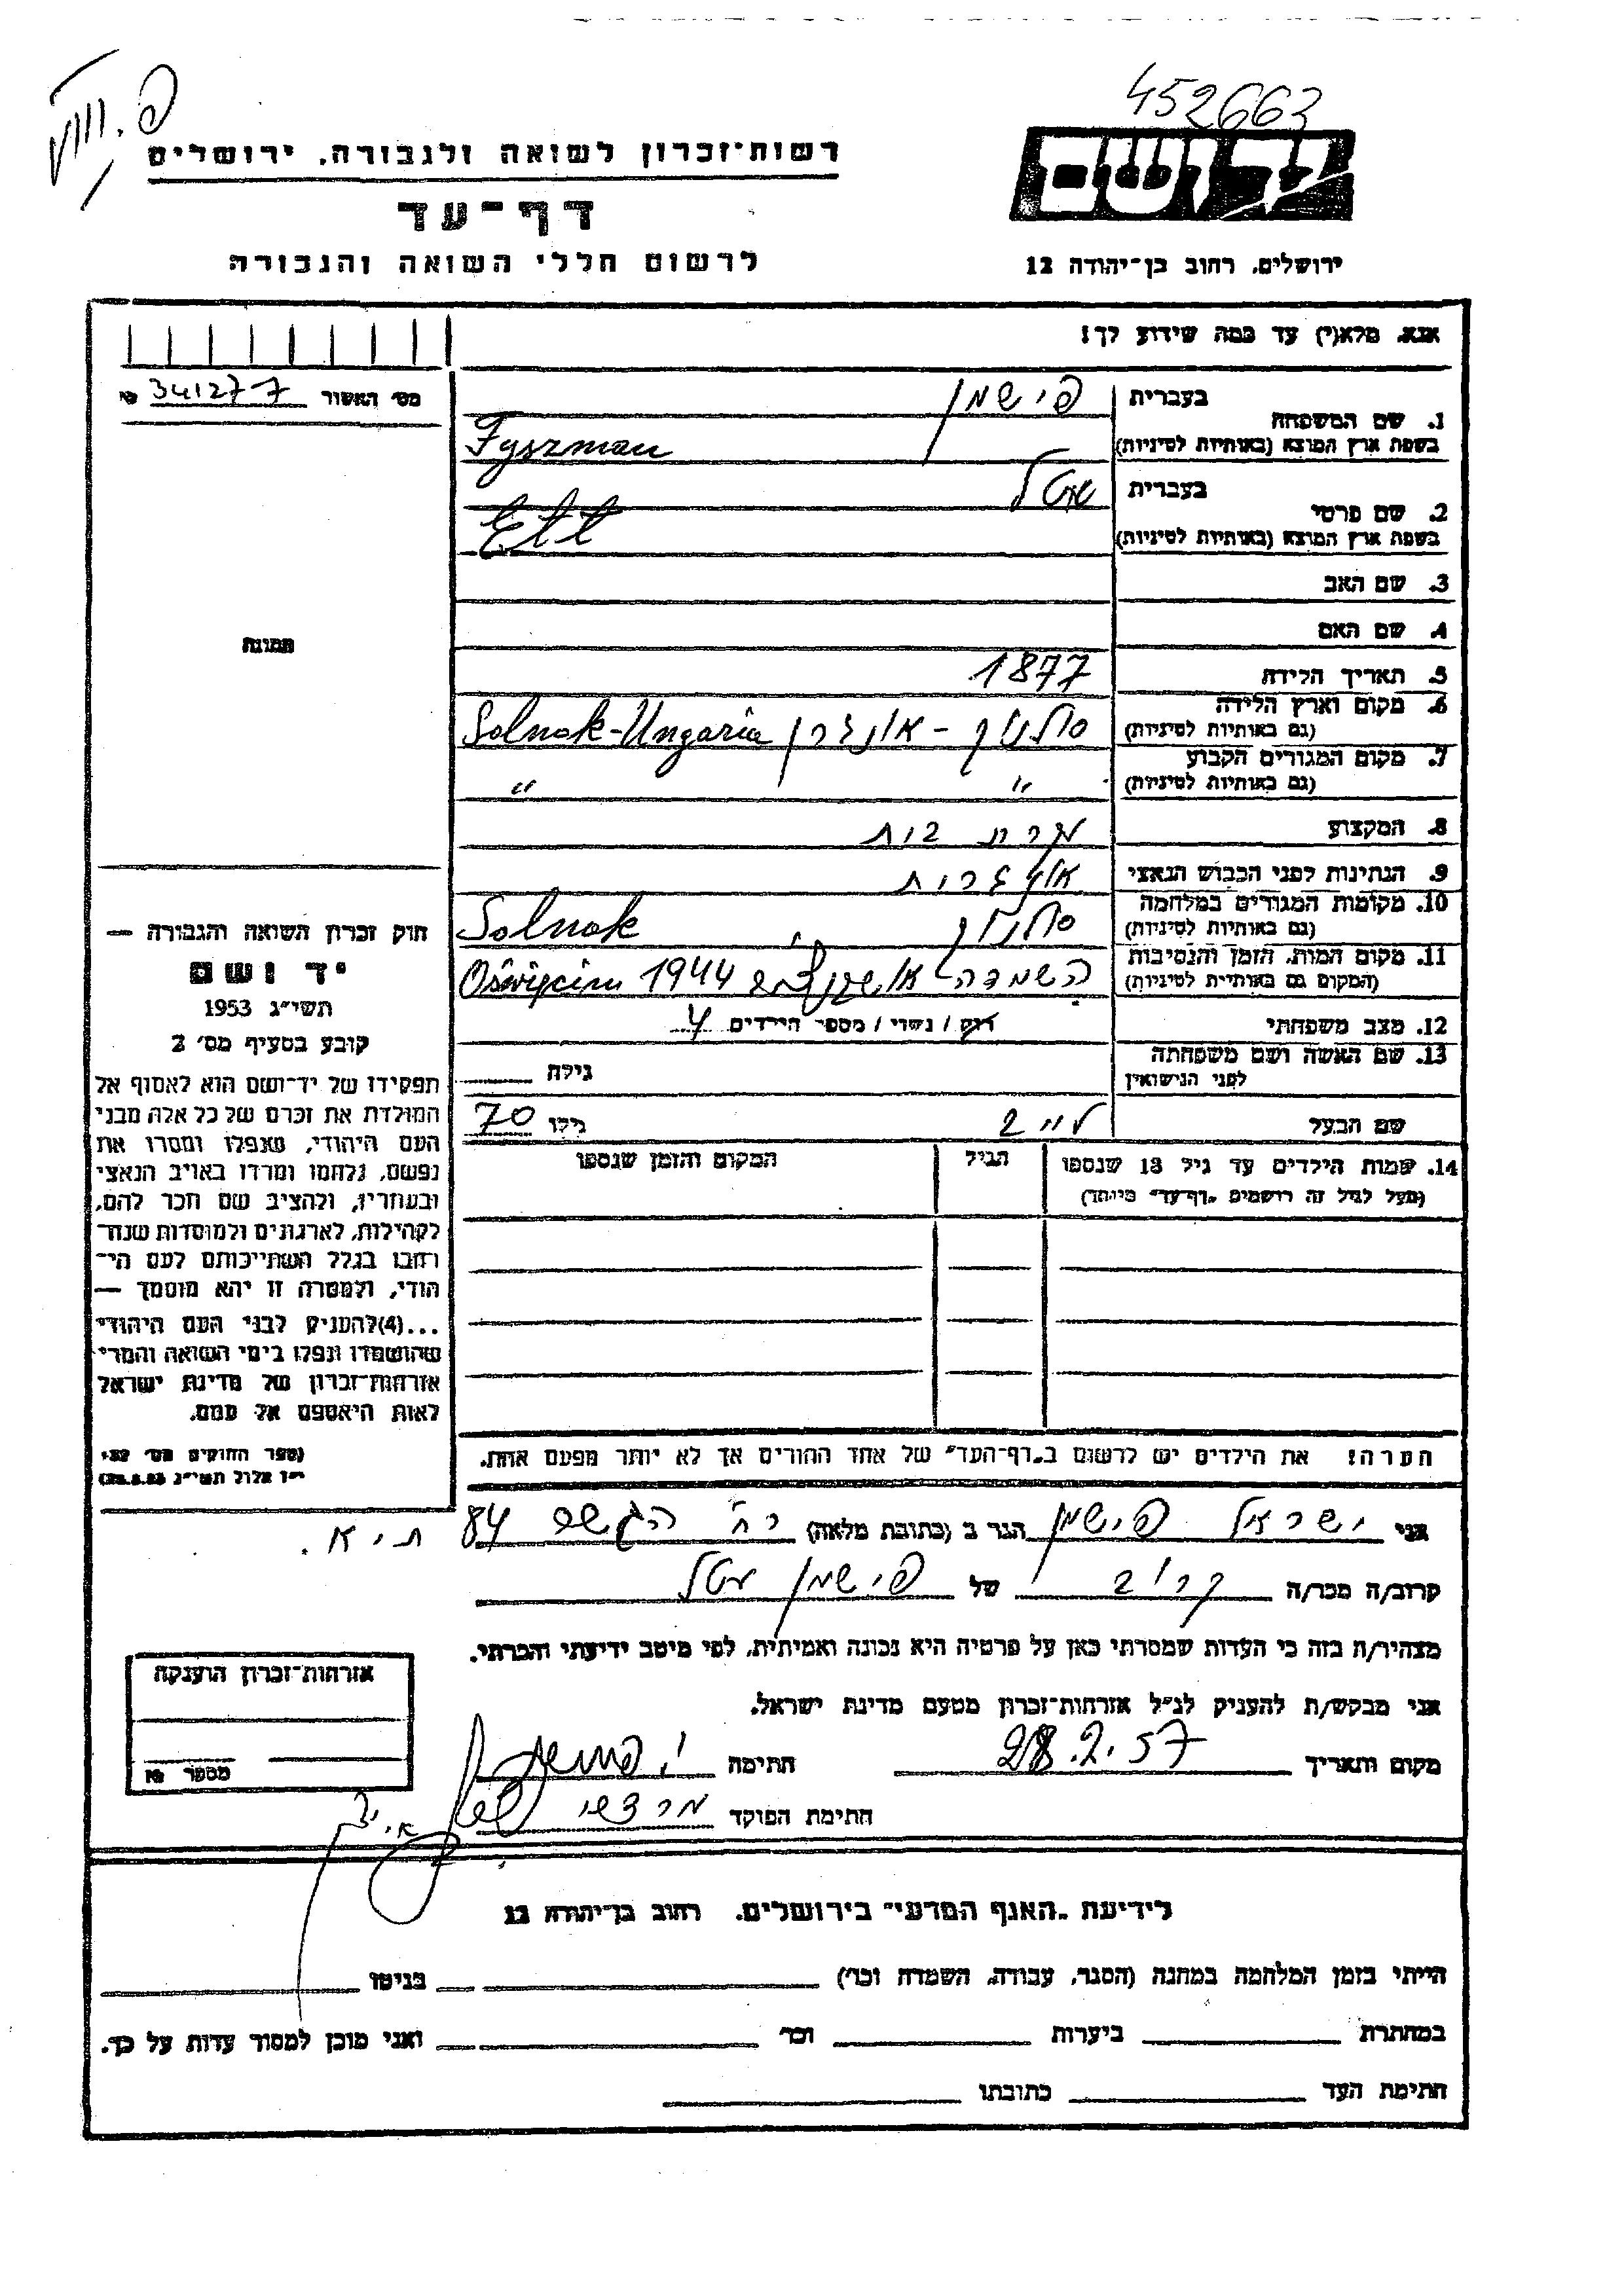 452663
רשות־זכרון לשואה ולגבורה, ירושלים
יד ושם
דף־עד
לרשום חללי השואה והגבורה
ירושלים, רחוב בן־יהודה 12
אנא, מלא(י) עד כמה שידוע לך!
מס׳ האשור 341277 №
1. שם המשפחה
בעברית פישמן
בשפת ארץ המוצא (באותיות לטיניות) Fyszman
2. שם פרטי
בעברית
בשפת ארץ המוצא (באותיות לטיניות) Ett
3. שם האב
4. שם האם
תמונה
5. תאריך הלידה 1877
6. מקום וארץ הלידה
(גם באותיות לטיניות) Solnok-Ungaria
7. מקום המגורים הקבוע
(גם באותיות לטיניות) " "
8. המקצוע עקרת בית
9. הנתינות לפני הכבוש הנאצי
10. מקומות המגורים במלחמה
(גם באותיות לטיניות) Solnok
11. מקום המות, הזמן והנסיבות
(המקום גם באותיות לטיניות) השמדה- Oświęcim 1944
12. מצב משפחתי רוק / נשוי / מספר הילדים 4
13. שם האשה ושם משפחתה
לפני הנישואין גילה
שם הבעל לייב גילו 70
14. שמות הילדים עד גיל 18 שנספו הגיל המקום והזמן שנספו
(מעל לגיל זה רושמים "דף־עד" מיוחד)
הערה! את הילדים יש לרשום ב"דף־העד" של אחד ההורים אך לא יותר מפעם אחת.
חוק זכרון השואה והגבורה —
יד ושם
תשי״ג 1953
קובע בסעיף מס׳ 2
תפקידו של יד־ושם הוא לאסוף אל
המולדת את זכרם של כל אלה מבני
העם היהודי, שנפלו ומסרו את
נפשם, נלחמו ומרדו באויב הנאצי
ובעוזריו, ולהציב שם וזכר להם,
לקהילות, לארגונים ולמוסדות שנח־
רבו בגלל השתייכותם לעם הי־
הודי, ולמטרה זו יהא מוסמך —
...(4)להעניק לבני העם היהודי
שהושמדו ונפלו בימי השואה והמרי
אזרחות־זכרון של מדינת ישראל
לאות היאספם אל עמם.
(ספר החוקים מס׳ 132,
י״ז אלול תשי״ג 28.8.53)
אני ישראל פישמן הגר ב (כתובת מלאה) רח׳ 84 ת״א.
קרוב/ה מכר/ה קרוב של פישמן עטל
מצהיר/ה בזה כי העדות שמסרתי כאן על פרטיה היא נכונה ואמיתית, לפי מיטב ידיעתי והכרתי.
אני מבקש/ת להעניק לנ״ל אזרחות־זכרון מטעם מדינת ישראל.
מקום ותאריך 28.2.57 חתימה
חתימת הפוקד מרדכי
אזרחות־זכרון הוענקה
מספר №
לידיעת "האגף המדעי" בירושלים, רחוב בן־יהודה 12
הייתי בזמן המלחמה במחנה (הסגר, עבודה, השמדה וכו׳) בגיטו
במחתרת ביערות וכו׳ ואני מוכן למסור עדות על כך.
חתימת העד כתובתו